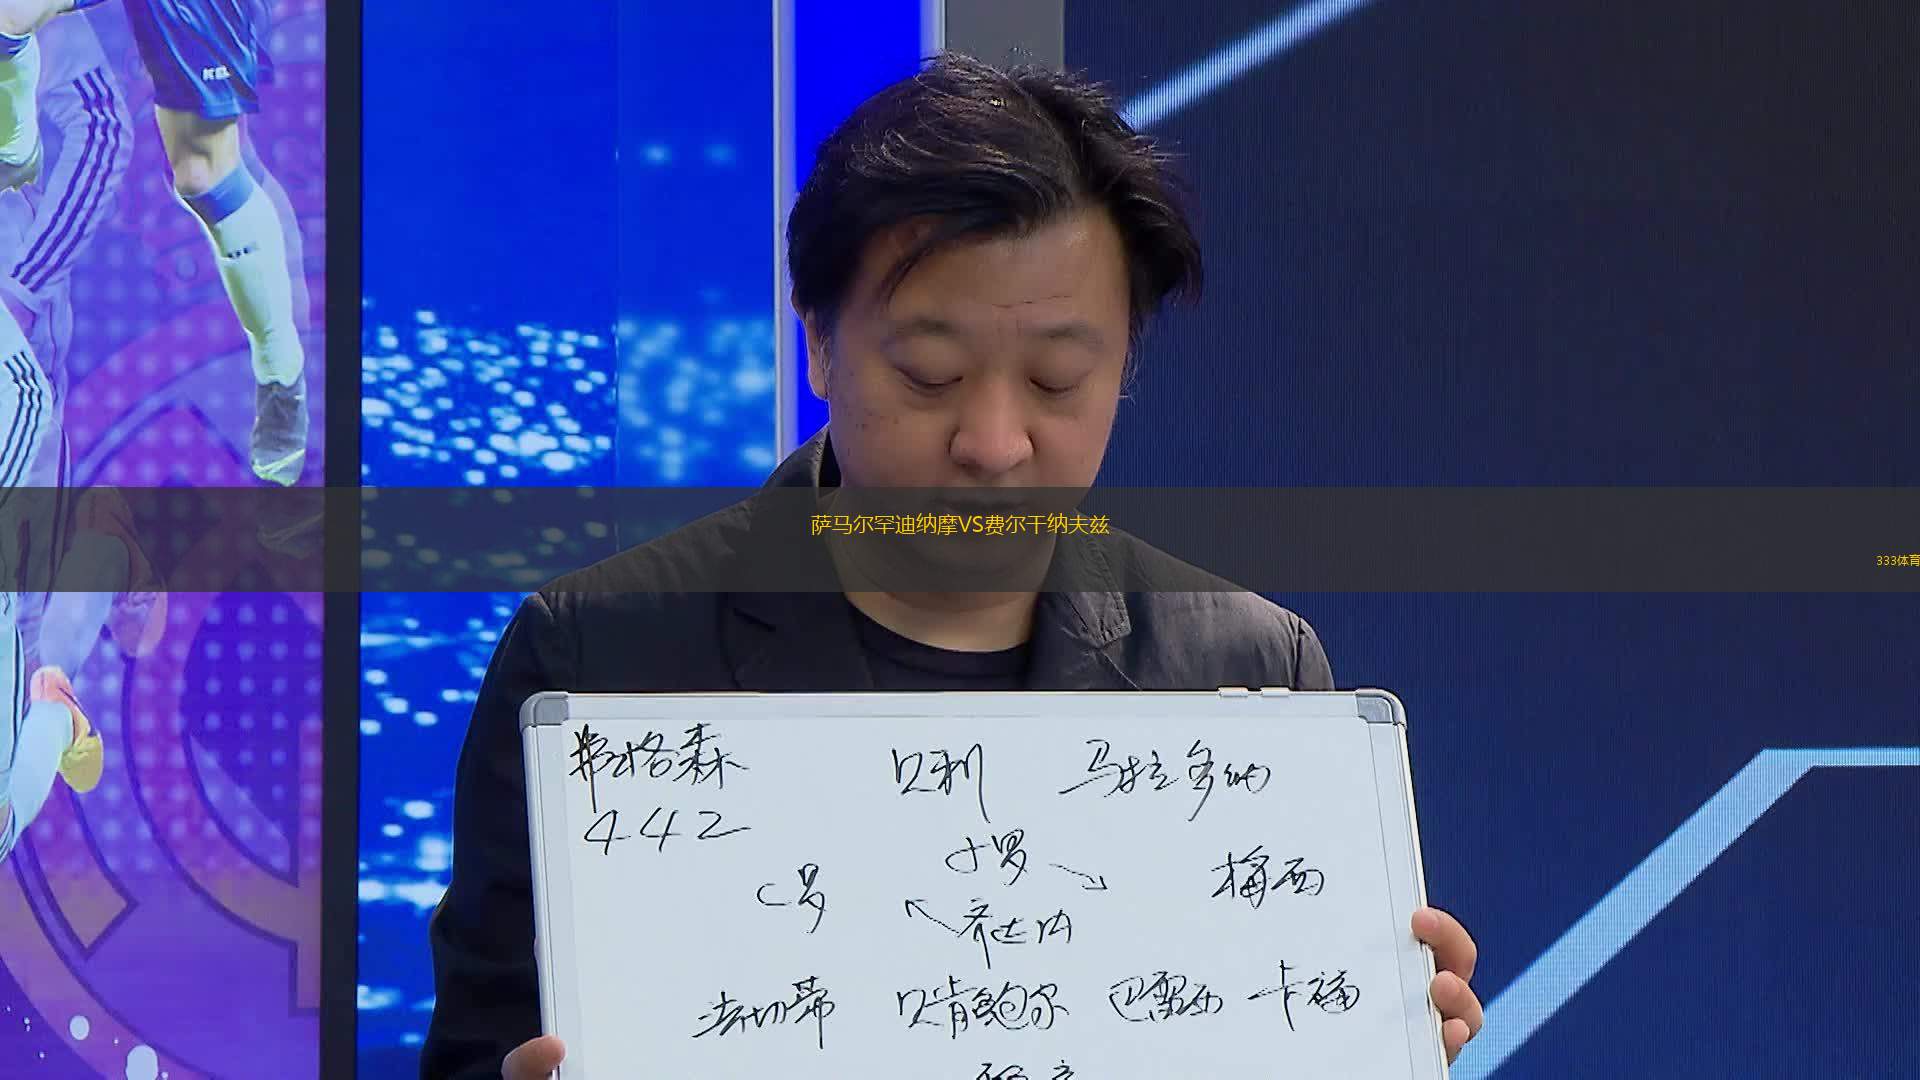 萨马尔罕迪纳摩VS费尔干纳夫兹
333体育
弗格森 贝利 马拉多纳
442
小罗
C罗 梅西
齐达内
法切蒂 贝肯鲍尔 巴雷西 卡福